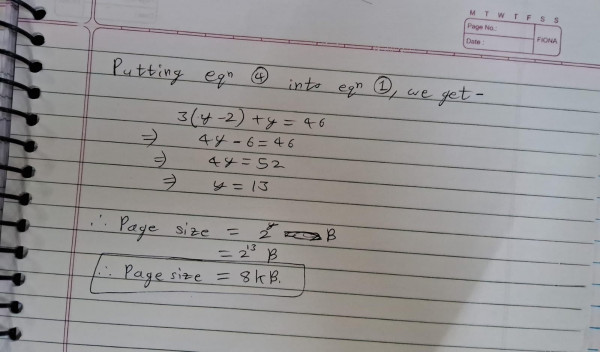 M T W T F S S
Page No.:
Date :
FIONA
Putting eqn ④ into eqn ①, we get -
3(y-2) + y = 46
⇒ 4y - 6 = 46
⇒ 4y = 52
⇒ y = 13
∴ Page size = 2^y B
= 2^13 B
∴ Page size = 8kB.